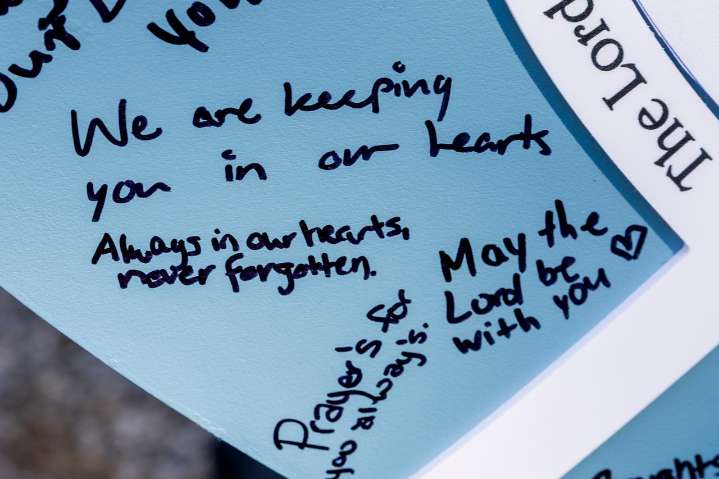 our
you
The Lord
We are keeping
you in our hearts
Always in our hearts,
never forgotten.
May the
Lord be
with you
Prayer's &
you always.